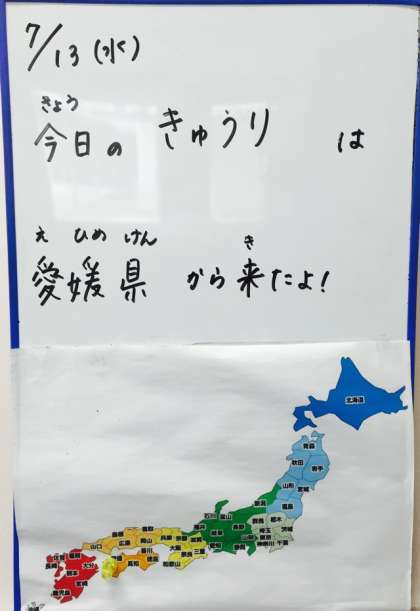 7/13(水)
きょう
今日の きゅうり は
えひめけん き
愛媛県 から来たよ!
北海道
青森
秋田 岩手
山形 宮城
福島
新潟
石川 富山
群馬 栃木
福井 岐阜 長野 埼玉 茨城
山梨 東京
愛知 静岡 神奈川 千葉
島根 鳥取
山口 広島 岡山 兵庫 京都 滋賀
大阪 奈良 三重
和歌山
香川
愛媛 徳島
高知
佐賀 福岡
長崎 大分
熊本
宮崎
鹿児島
沖縄